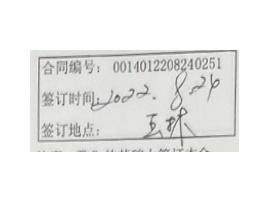 合同编号: 0014012208240251
签订时间: 2022.8.24
签订地点: 玉环